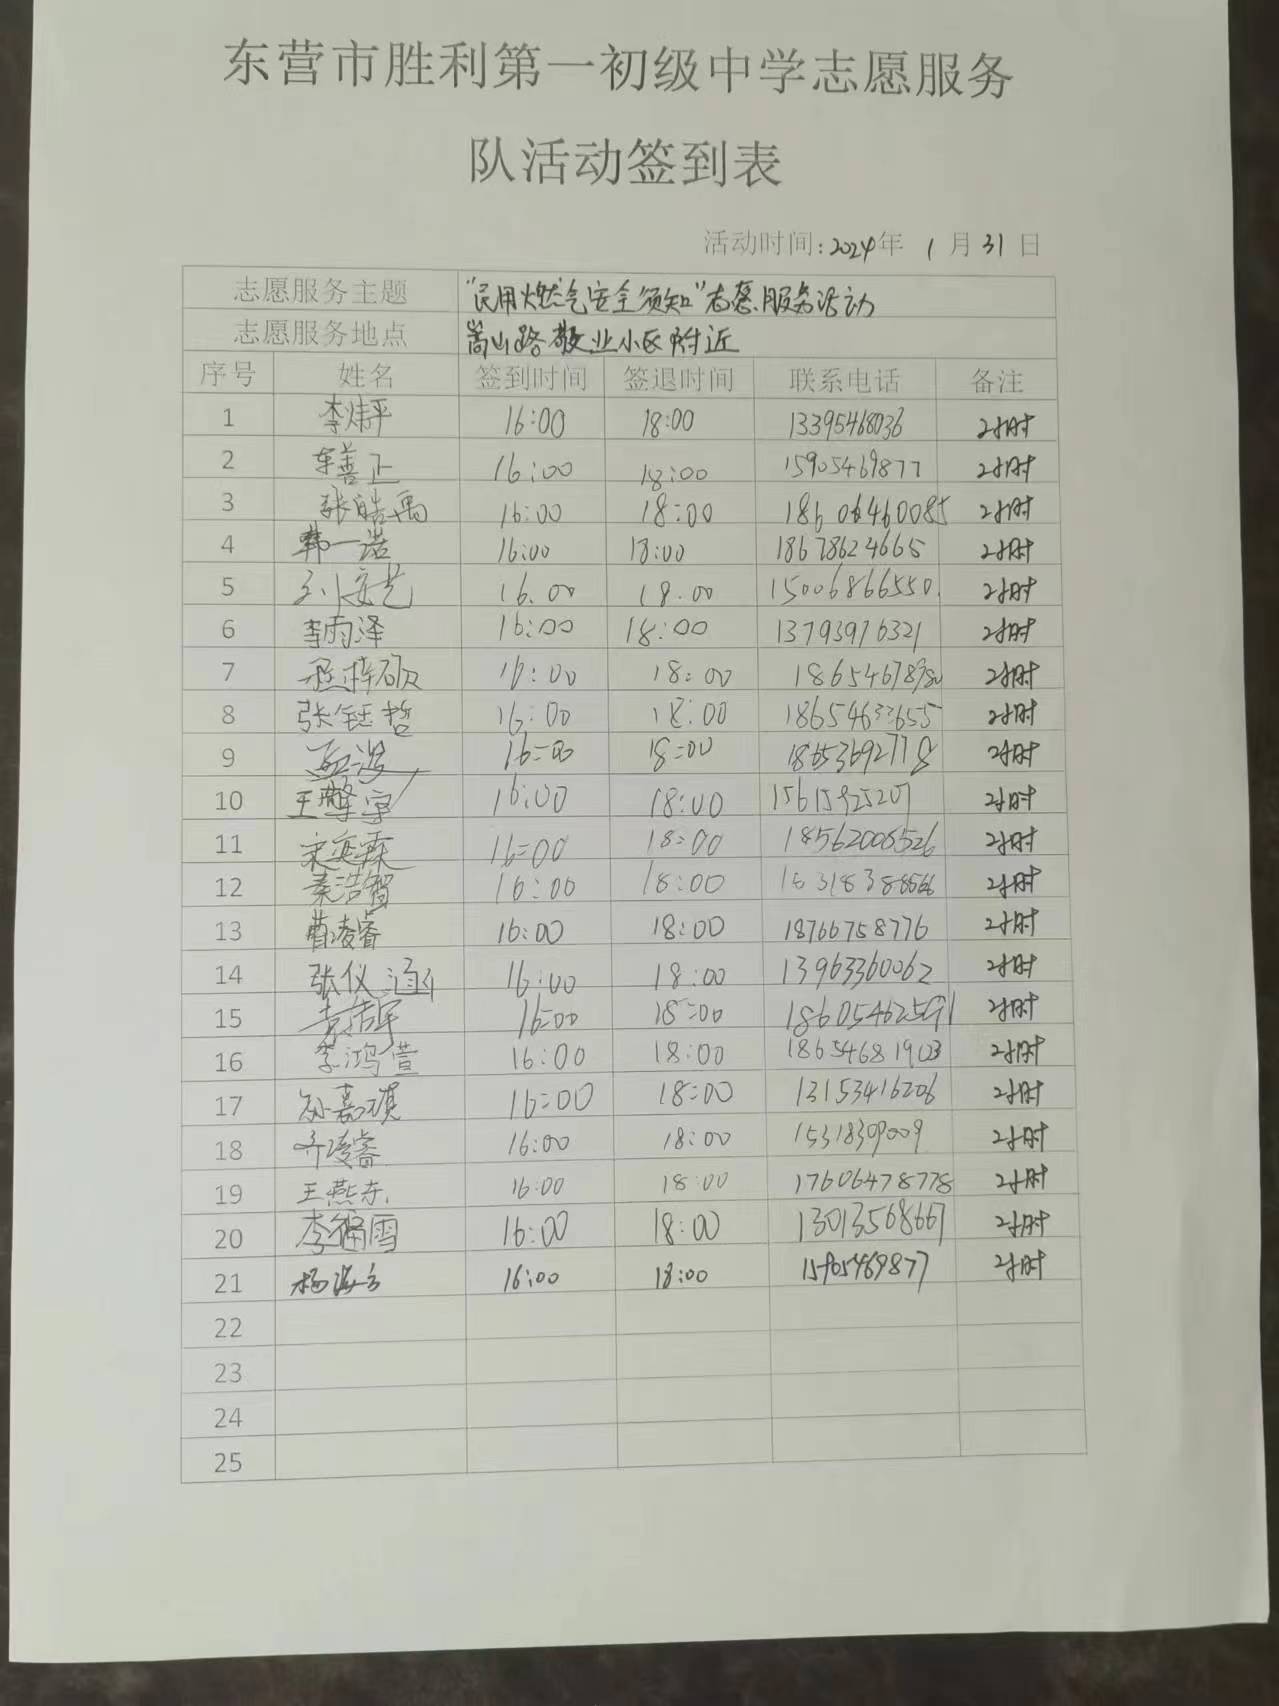 东营市胜利第一初级中学志愿服务
队活动签到表
活动时间:2024年 1 月 31 日
志愿服务主题 "民用燃气安全须知"志愿服务活动
志愿服务地点 嵩山路敬业小区附近
序号 姓名 签到时间 签退时间 联系电话 备注
1 李炜平 16:00 18:00 13395468036 2小时
2 车善正 16:00 18:00 15905469877 2小时
3 张皓禹 16:00 18:00 18606460085 2小时
4 韩一诺 16:00 18:00 18678624665 2小时
5 16.00 18.00 15006866550 2小时
6 李雨泽 16:00 18:00 13793976321 2小时
7 16:00 18:00 2小时
8 张钰哲 16:00 18:00 18654633655 2小时
9 16:00 18:00 2小时
10 王擎宇 16:00 18:00 15615925207 2小时
11 16=00 18=00 18562006526 2小时
12 秦浩智 16:00 18:00 2小时
13 曹凌睿 16:00 18:00 18766758776 2小时
14 张仪涵 16:00 18:00 13963360062 2小时
15 16=00 18=00 18605462591 2小时
16 李鸿萱 16:00 18:00 18654681903 2小时
17 孙嘉琪 16=00 18=00 13153416206 2小时
18 齐凌睿 16:00 18:00 15318309009 2小时
19 王燕东 16:00 18:00 17606478778 2小时
20 李福雪 16:00 18:00 13013568667 2小时
21 杨海方 16:00 18:00 15905469877 2小时
22
23
24
25